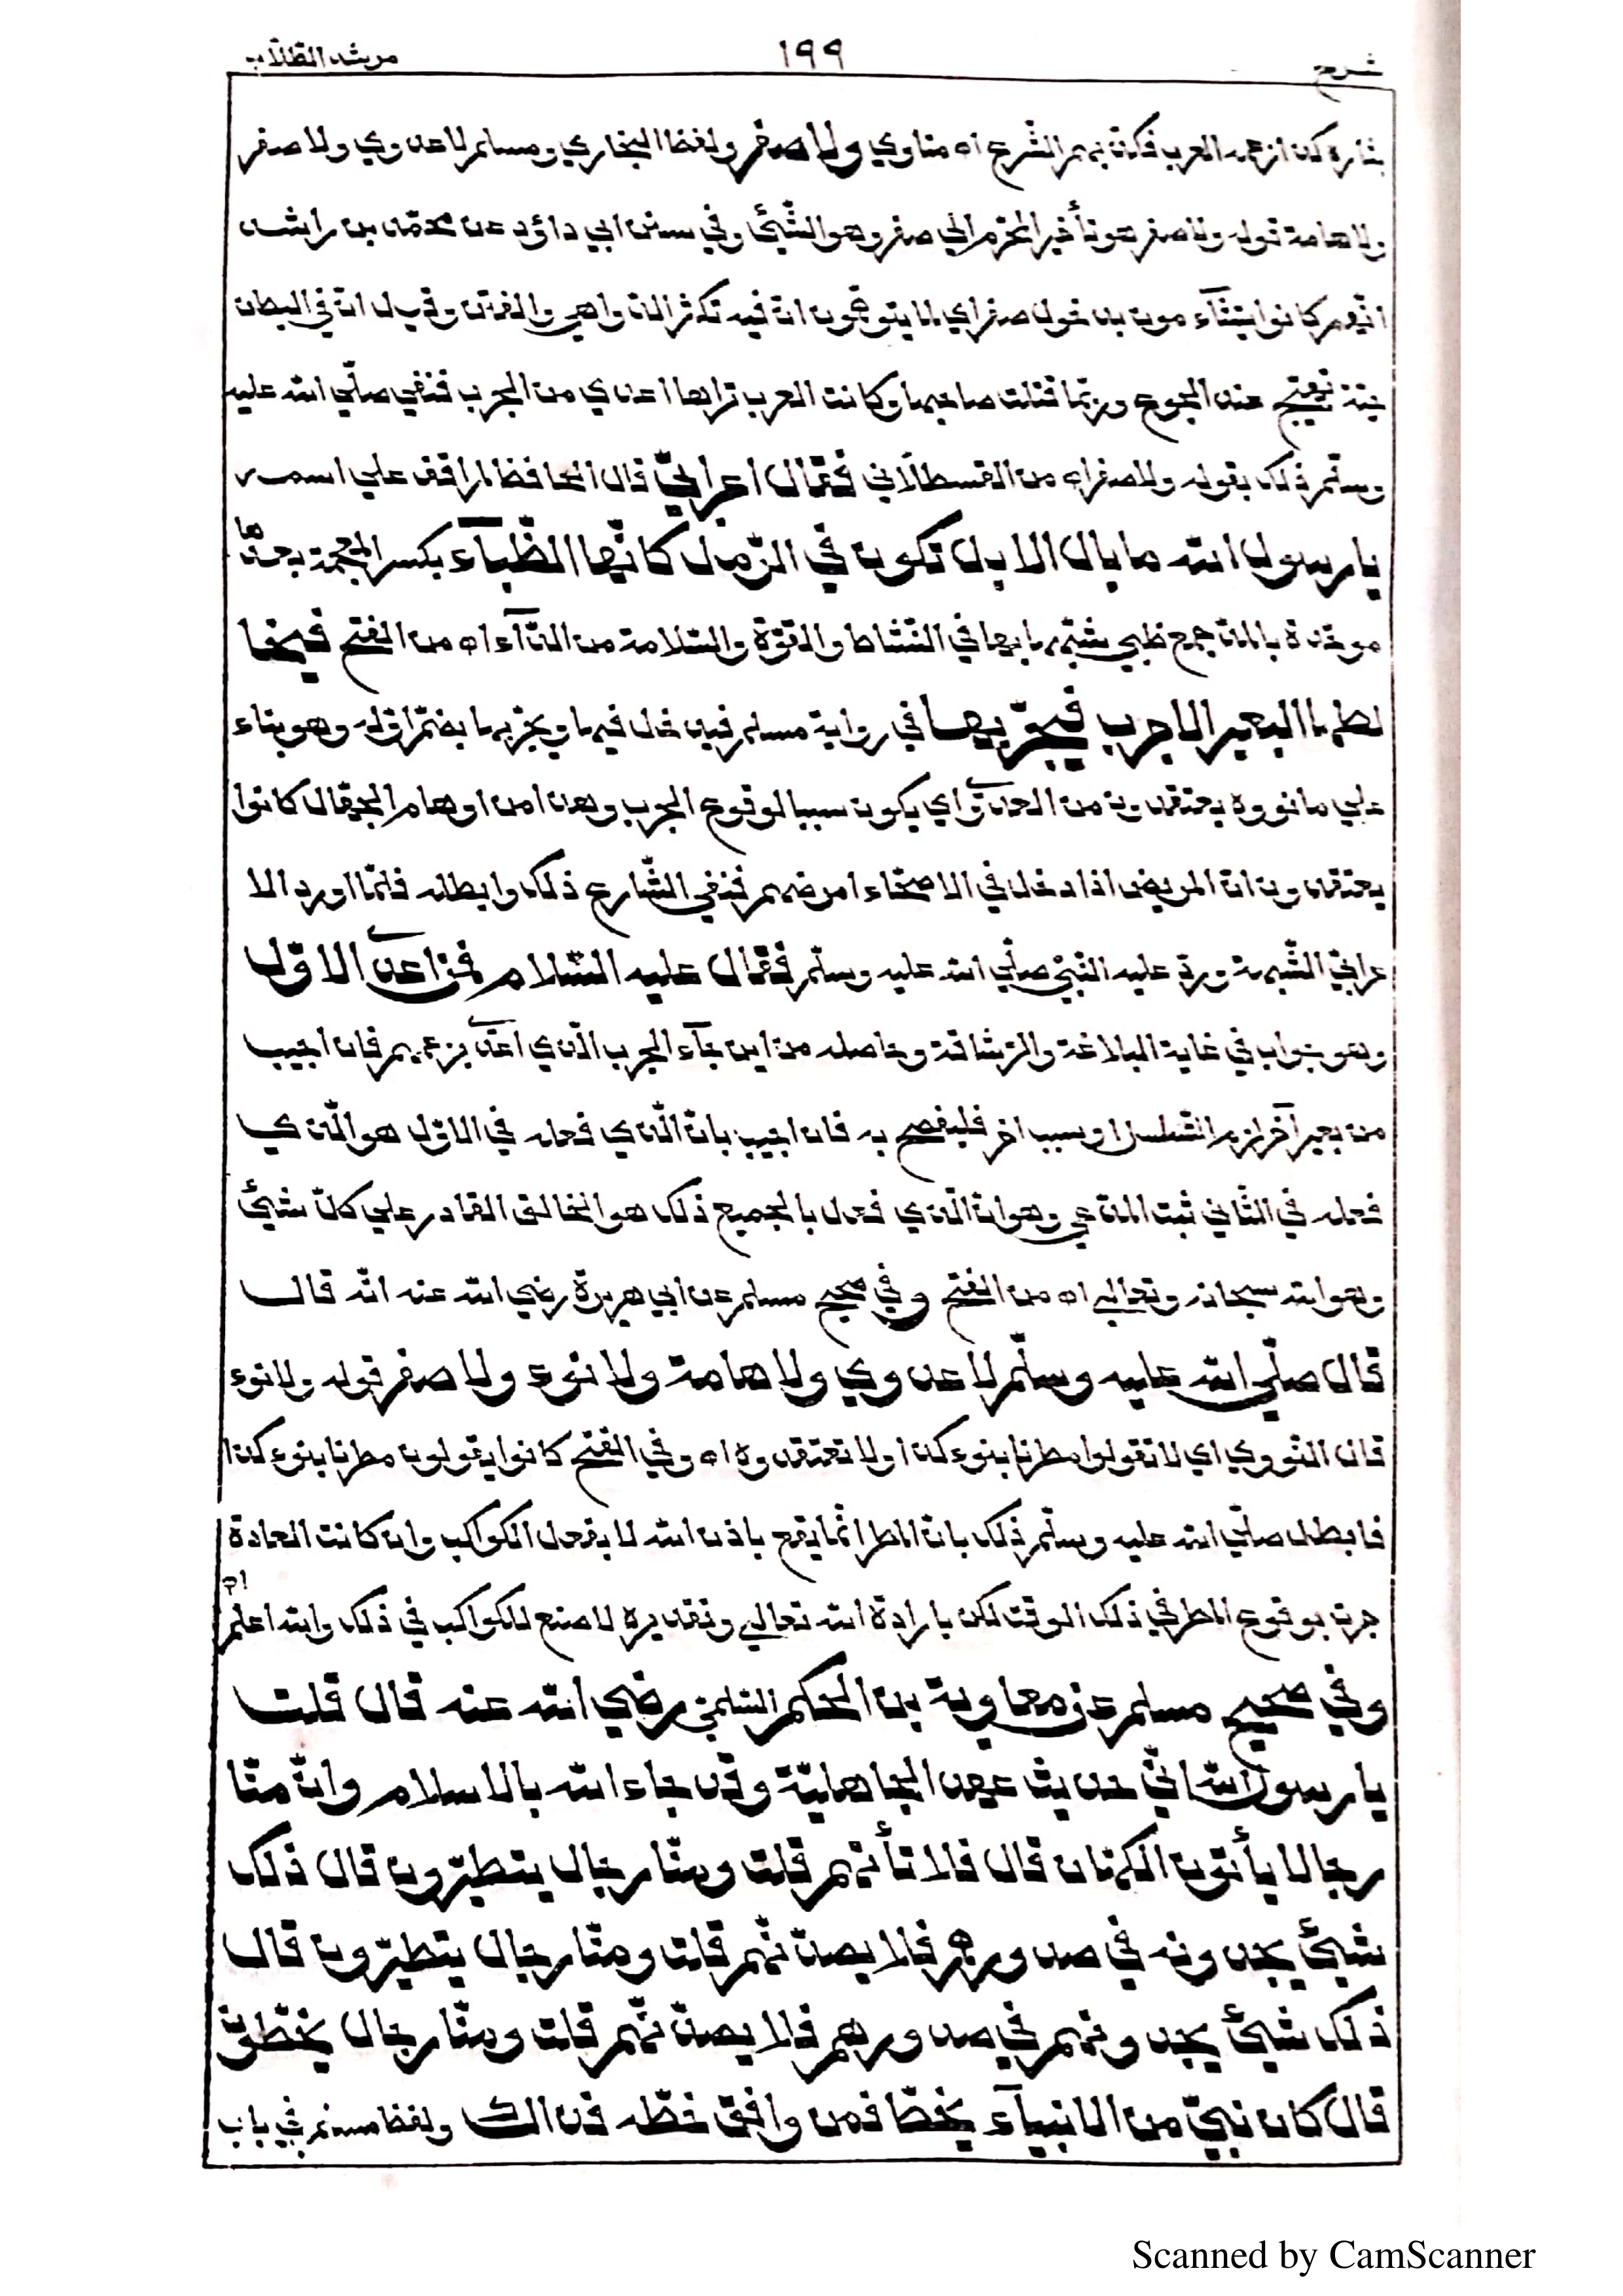 شرح ١٩٩ مرشد الطّلّاب
العرب فكذّبهم الشّرع اه مناوي ولا صفر ولفظ البخاري ومسلم لا عدوي ولا صفر
ولا هامة قوله ولا صفر هو تأخير المحرّم الي صفر وهو النّسيئ وفي سنن ابي داؤد عن محمّد بن راشد
انّهم كانوا يتشآءمون بدخول صفر اي لما يتوهّمون انّ فيه تكثر الدّواهي والفتن وقيل انّ في البطن
حيّة تهيج عند الجوع وربّما قتلت صاحبها وكانت العرب تراها اعدي من الجرب فنفي صلّي الله عليه
وسلّم ذلك بقوله ولا صفر اه من القسطلّاني فقال اعرابيّ قال الحافظ لم اقف علي اسمه
يا رسول الله ما بال الابل تكون في الرّمل كانّها الظّبآء بكسر المعجمة بعدها
موحّدة بالمدّ جمع ظبي شبّهها بها في النّشاط والقوّة والسّلامة من الدّآء اه من الفتح فيخا
لطها البعير الاجرب فيجرّبها في رواية مسلم فيدخل فيها ويجربها بضمّ اوّله وهو بناء
علي ما كانوا يعتقدون من العدوي اي يكون سببا لوقوع الجرب وهذا من اوهام الجهّال كانوا
يعتقدون انّ المريض اذا دخل في الاصحّاء امرضهم فنفي الشّارع ذلك وابطله فلمّا اورد الا
عرابيّ الشّبهة وردّ عليه النّبيّ صلّي الله عليه وسلّم فقال عليه السّلام فمن اعدي الاوّل
وهو جواب في غاية البلاغة والرّشاقة وحاصله من اين جآء الجرب الّذي اعدي بزعمهم فان اجيب
من بعير آخر لزم التّسلسل او سبب اخر فليفصح به فان اجيب بانّ الّذي فعله في الاوّل هو الّذي
فعله في الثّاني ثبت المدّعي وهو انّ الّذي فعل بالجميع ذلك هو الخالق القادر علي كلّ شيئ
وهو الله سبحانه وتعالي اه من الفتح وفي صحيح مسلم عن ابي هريرة رضي الله عنه انّه قال
قال صلّي الله عليه وسلّم لا عدوي ولا هامة ولا نوء ولا صفر قوله ولا نوء
قال النّووي اي لا تقولوا مطرنا بنوء كذا ولا تعتقدوه اه وفي الفتح كانوا يقولون مطرنا بنوء كذا
فابطل صلّي الله عليه وسلّم ذلك بانّ المطر انّما يقع باذن الله لا بفعل الكواكب وان كانت العادة
جرت بوقوع المطر في ذلك الوقت لكن بارادة الله تعالي وتقديره لا صنع للكواكب في ذلك والله اعلم اه
وفي صحيح مسلم عن معاوية بن الحكم السّلمي رضي الله عنه قال قلت
يا رسول الله انّي حديث عهد الجاهليّة وقد جاء الله بالاسلام وانّ منّا
رجالا يأتون الكهّان قال فلا تأتهم قلت ومنّا رجال يتطيّرون قال ذلك
شيئ يجدونه في صدورهم فلا يصدّنّهم قلت ومنّا رجال يتطيّرون قال
ذلك شيئ يجدونهم في صدورهم فلا يصدّنّهم قلت ومنّا رجال يخطّون
قال كان نبيّ من الانبيآء يخطّ فمن وافق خطّه فذاك ولفظ مسلم في باب
Scanned by CamScanner